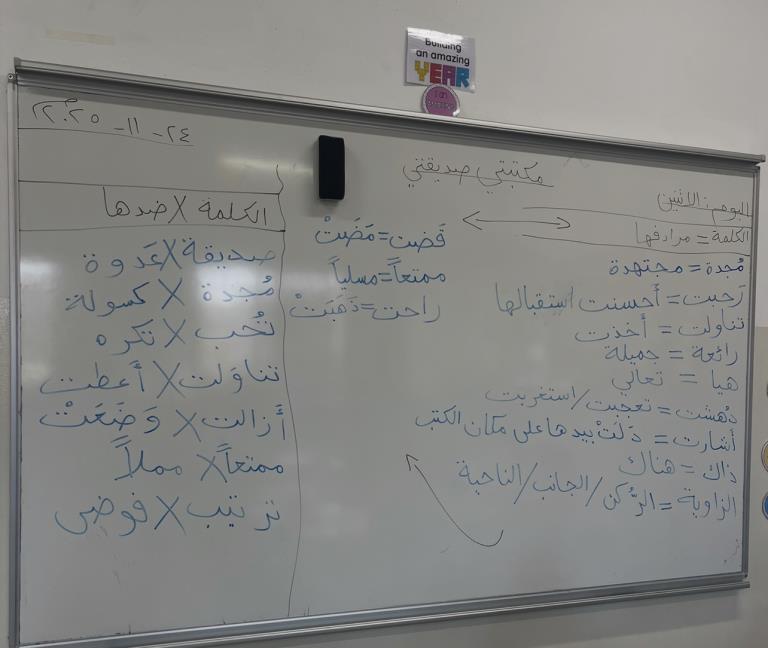 Building
an amazing
YEAR
I am
٢٤ - ١١ - ٢٠٢٥م
مكتبتي صديقتي
اليوم: الاثنين
الكلمة = مرادفها
مُجدة = مجتهدة
رَحبت = أحسنت استقبالها
تناولت = أخذت
رائعة = جميلة
هيا = تعالي
دُهشت = تعجبت / استغربت
أشارت = دَلَتْ بيدها على مكان الكتب
ذاك = هناك
الزاوية = الرُّكن / الجانب / الناحية
قَضت = مَضَتْ
ممتعاً = مسلياً
راحت = ذَهَبَتْ
الكلمة X ضدها
صديقة X عَدوة
مُجدة X كسولة
تُحب X تكره
تناوَلت X أَعطت
أَزالت X وَضَعَتْ
ممتعاً X مملاً
ترتيب X فوضى